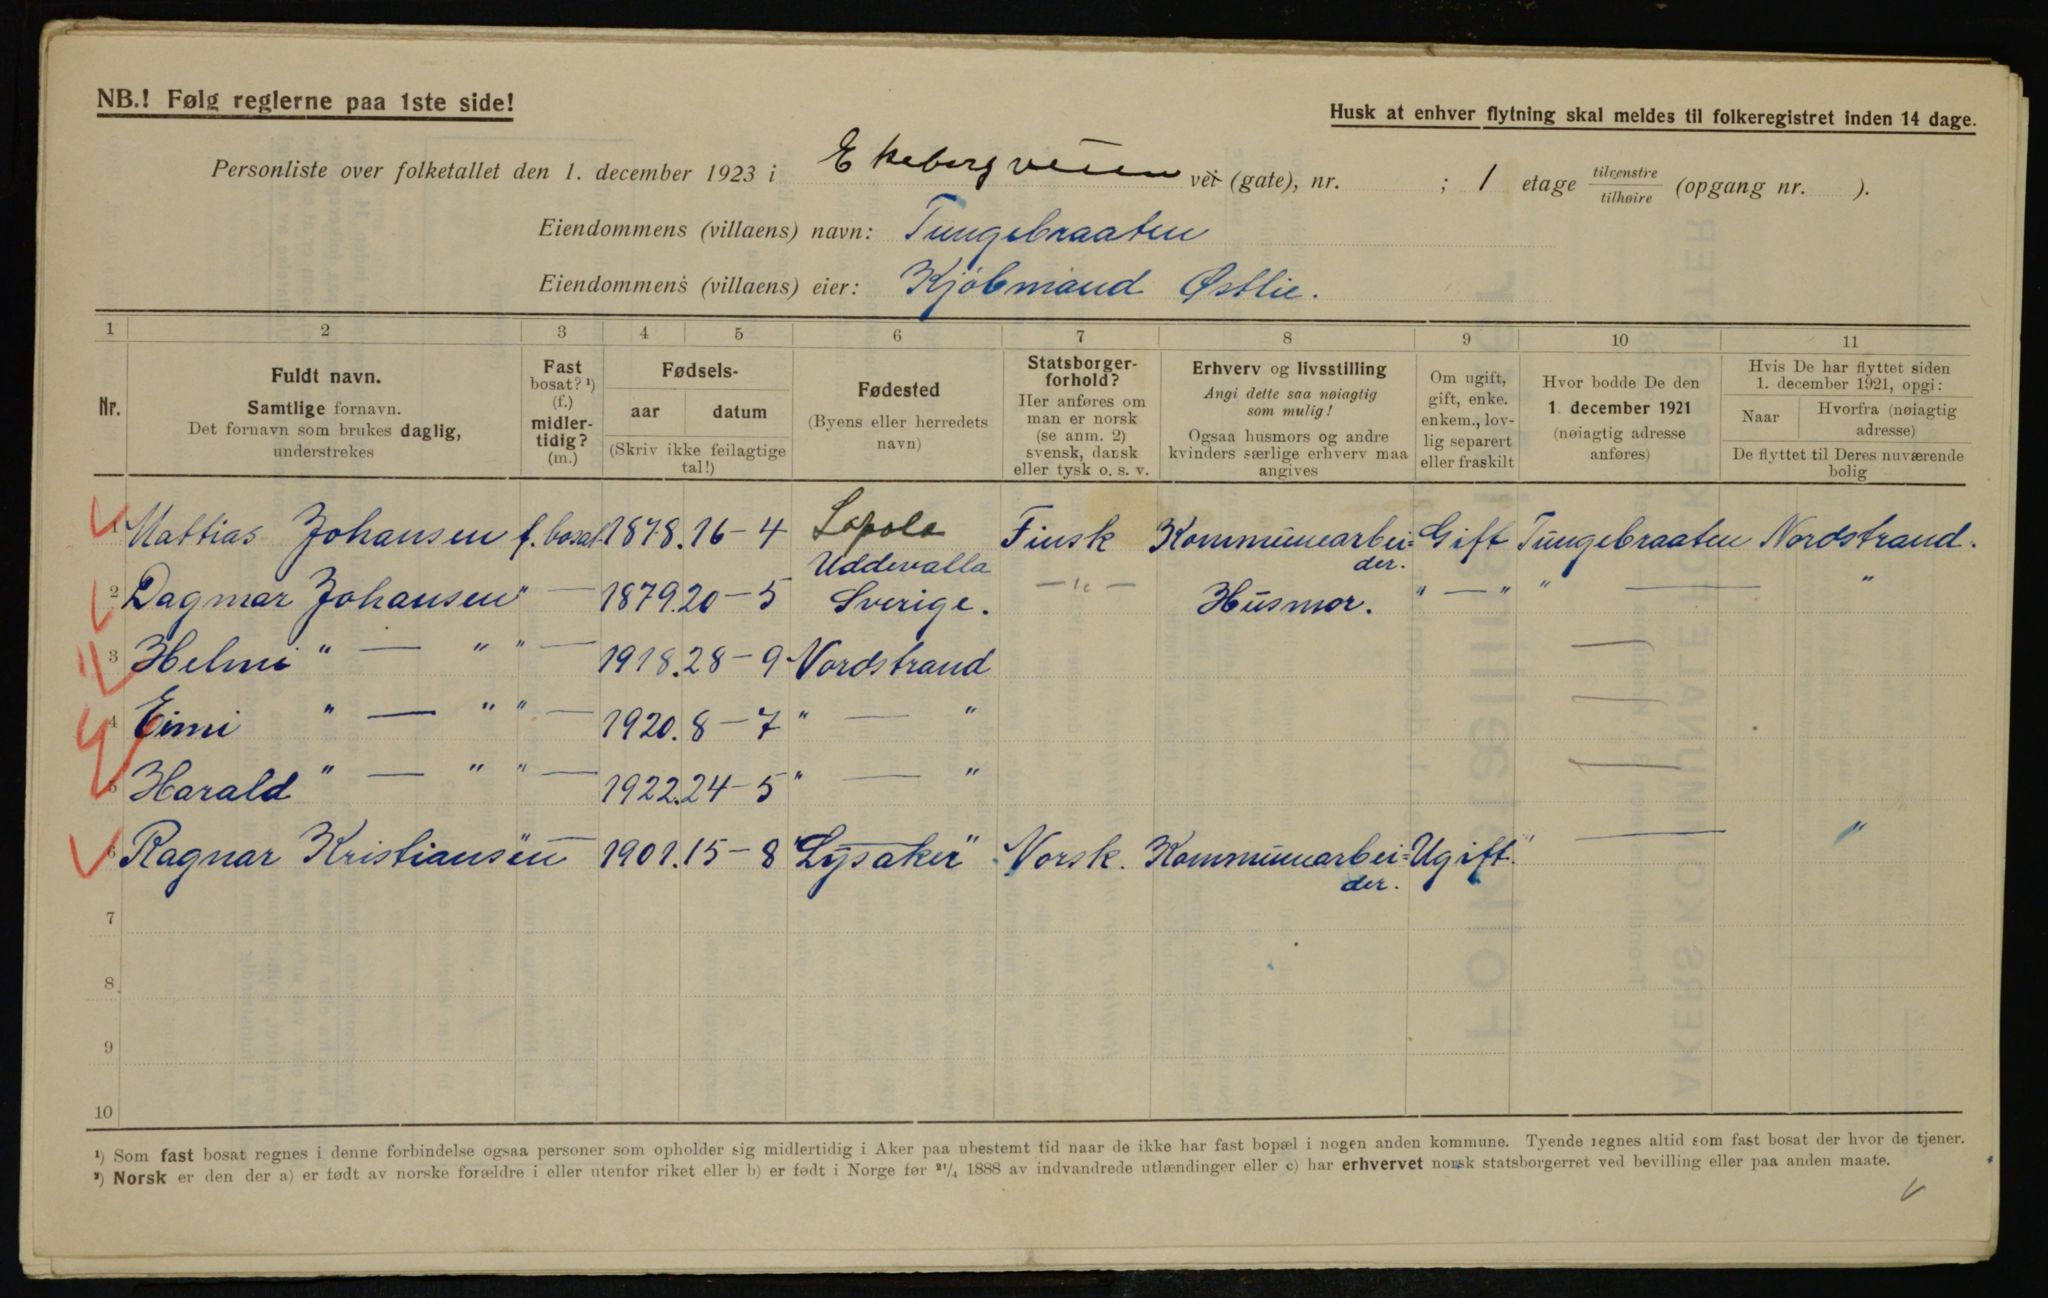 NB.! Følg reglerne paa 1ste side!
Husk at enhver flytning skal meldes til folkeregistret inden 14 dage.
Personliste over folketallet den 1. december 1923 i Ekebergveien vei (gate), nr. ; 1 etage tilvenstre/tilhøire (opgang nr. ).
Eiendommens (villaens) navn: Tungebraaten
Eiendommens (villaens) eier: Kjöbmand Østlie.
1 2 3 4 5 6 7 8 9 10 11
Nr.
Fuldt navn.
Samtlige fornavn.
Det fornavn som brukes daglig,
understrekes
Fast
bosat? ¹)
(f.)
midler-
tidig?
(m.)
Fødsels-
aar datum
(Skriv ikke feilagtige
tal!)
Fødested
(Byens eller herredets
navn)
Statsborger-
forhold?
Her anføres om
man er norsk
(se anm. 2)
svensk, dansk
eller tysk o. s. v.
Erhverv og livsstilling
Angi dette saa nøiagtig
som mulig!
Ogsaa husmors og andre
kvinders særlige erhverv maa
angives
Om ugift,
gift, enke.
enkem., lov-
lig separert
eller fraskilt
Hvor bodde De den
1. december 1921
(nøiagtig adresse
anføres)
Hvis De har flyttet siden
1. december 1921, opgi:
Naar
Hvorfra (nøiagtig
adresse)
De flyttet til Deres nuværende
bolig
1 Mattias Johansen f. bosat 1878. 16-4 Finsk Kommunearbei=der. Gift Tungebraaten Nordstrand.
2 Dagmar Johansen " — 1879. 20-5 Uddevalla Sverige. — " — Husmor. " — " " — "
3 Helmi " — " " — 1918. 28-9 Nordstrand
4 Eimi " — " " — 1920. 8-7 " — "
5 Harald " — " " — 1922. 24-5 " — "
6 Ragnar Kristiansen " — 1901. 15-8 Lysaker Norsk. Kommunearbei=der. Ugift. " — "
7
8
9
10
¹) Som fast bosat regnes i denne forbindelse ogsaa personer som opholder sig midlertidig i Aker paa ubestemt tid naar de ikke har fast bopæl i nogen anden kommune. Tyende regnes altid som fast bosat der hvor de tjener.
²) Norsk er den der a) er født av norske forældre i eller utenfor riket eller b) er født i Norge før ²¹/₄ 1888 av indvandrede utlændinger eller c) har erhvervet norsk statsborgerret ved bevilling eller paa anden maate.